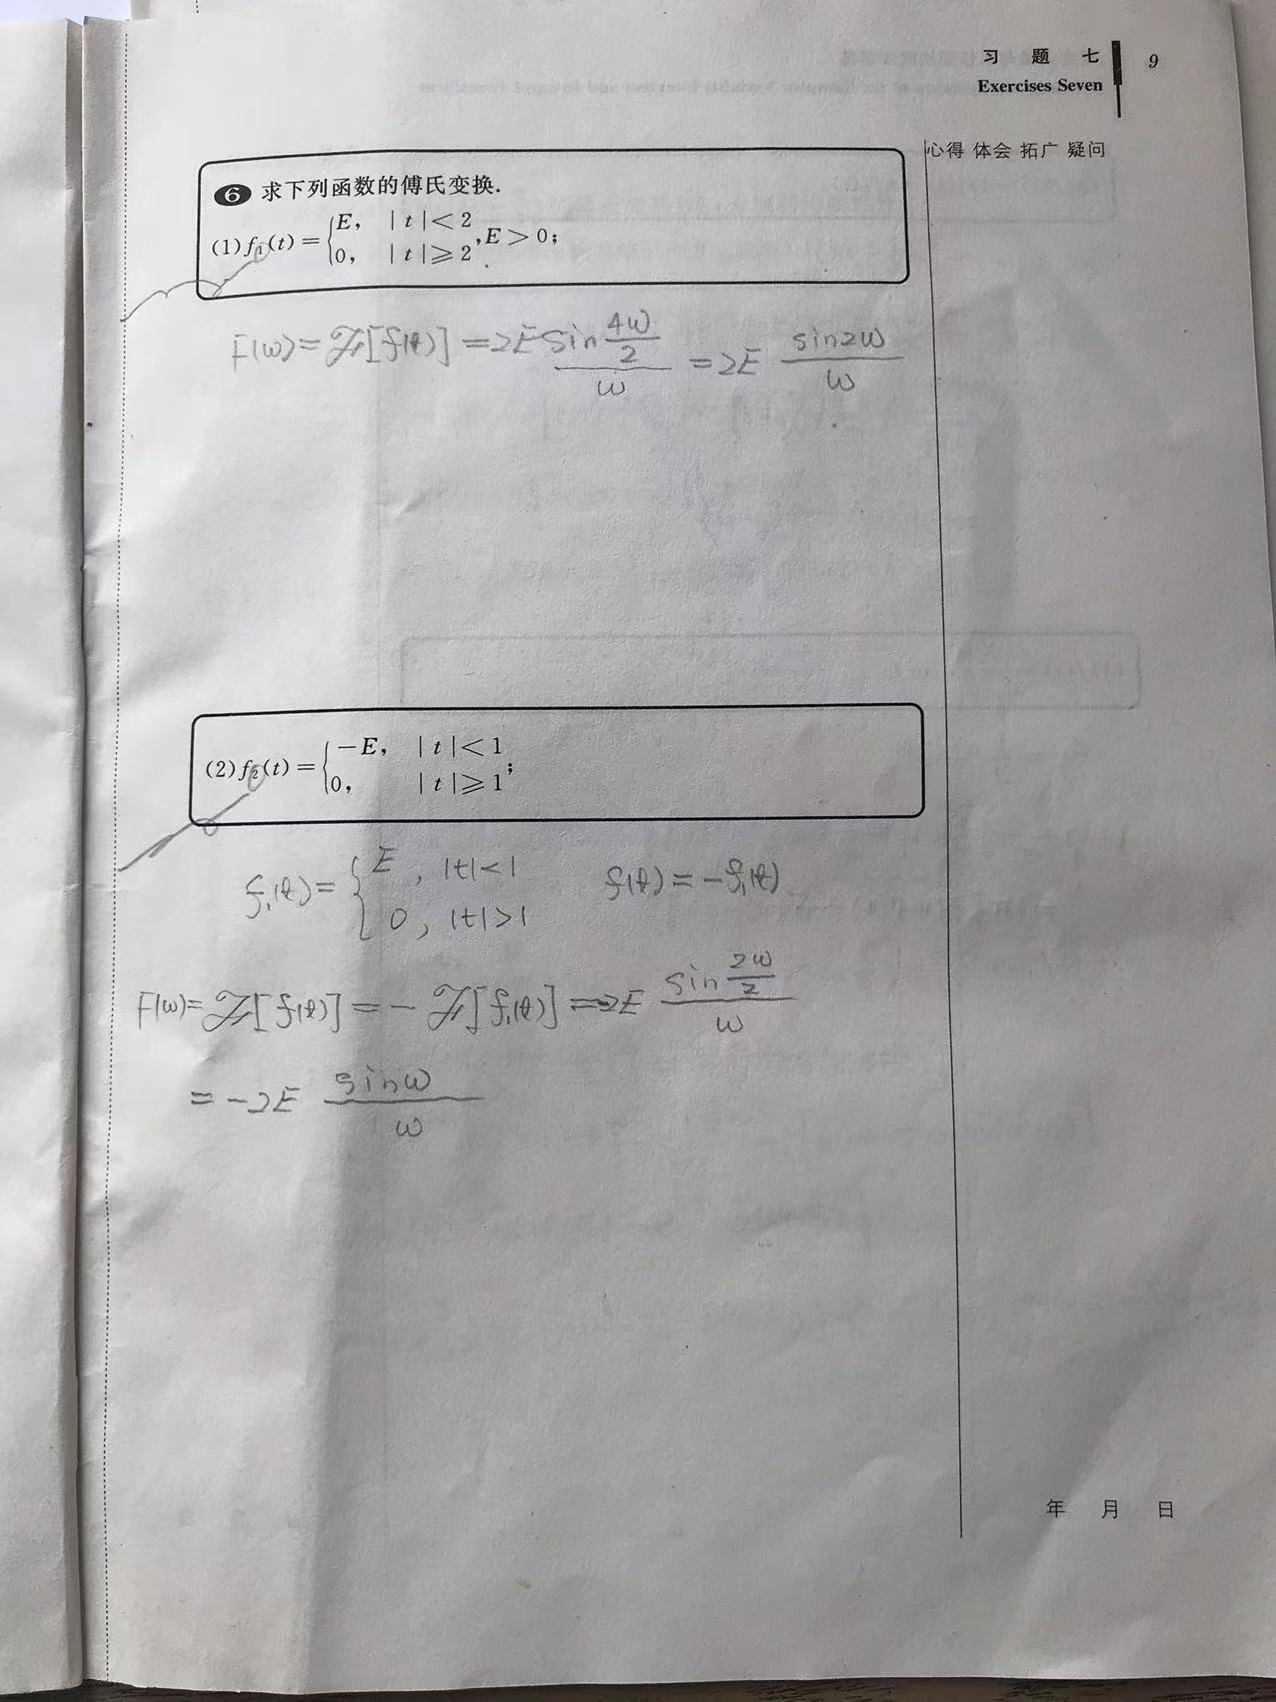 习 题 七
Exercises Seven
9
心得 体会 拓广 疑问
6 求下列函数的傅氏变换.
(1) f₁(t) = { E, |t| < 2
0, |t| ⩾ 2 , E > 0;
F(ω) = ℱ[f(t)] = 2E sin(4ω/2)/ω = 2E sin2ω/ω
(2) f₂(t) = { −E, |t| < 1
0, |t| ⩾ 1 ;
f₁(t) = { E, |t| < 1 f(t) = −f₁(t)
0, |t| > 1
F(ω) = ℱ[f(t)] = −ℱ[f₁(t)] = −2E sin(2ω/2)/ω
= −2E sinω/ω
年 月 日